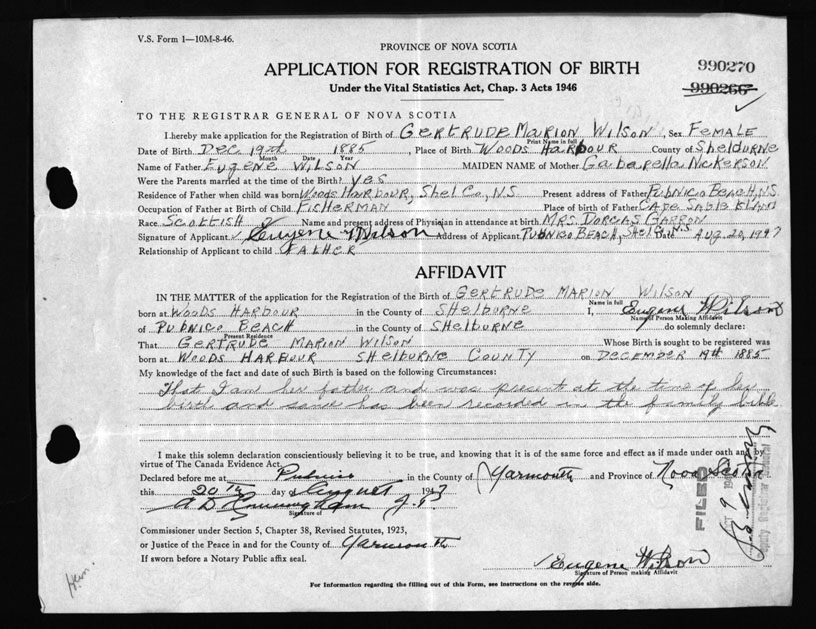 V.S. Form 1—10M-8-46.
PROVINCE OF NOVA SCOTIA
APPLICATION FOR REGISTRATION OF BIRTH
990270
Under the Vital Statistics Act, Chap. 3 Acts 1946
990266
TO THE REGISTRAR GENERAL OF NOVA SCOTIA
I hereby make application for the Registration of Birth of GERTRUDE MARION WILSON, Sex FEMALE
Print Name in full
Date of Birth DEC 19th 1885 Place of Birth WOODS HARBOUR County of SHELBURNE
Month Date Year
Name of Father EUGENE WILSON MAIDEN NAME of Mother NICKERSON
Were the Parents married at the time of the Birth? YES
Residence of Father when child was born WOODS HARBOUR, SHEL. CO., N.S. Present address of Father PUBNICO BEACH, N.S.
Occupation of Father at Birth of Child FISHERMAN Place of birth of Father CAPE SABLE ISLAND
Race SCOTTISH Name and present address of Physician in attendance at birth MRS. DORCAS
Signature of Applicant Eugene Wilson Address of Applicant PUBNICO BEACH, Shel Co, N.S. Date AUG 20, 1947
Relationship of Applicant to child FATHER
AFFIDAVIT
IN THE MATTER of the application for the Registration of the Birth of GERTRUDE MARION WILSON
Name in full
born at WOODS HARBOUR in the County of SHELBURNE I, Eugene Wilson
Name of Person Making Affidavit
of PUBNICO BEACH in the County of SHELBURNE do solemnly declare:
Present Residence
That GERTRUDE MARION WILSON Whose Birth is sought to be registered was
born at WOODS HARBOUR SHELBURNE COUNTY on DECEMBER 19th 1885
My knowledge of the fact and date of such Birth is based on the following Circumstances:
That I am her father and was present at the time of her
birth and same has been recorded in the family bible
I make this solemn declaration conscientiously believing it to be true, and knowing that it is of the same force and effect as if made under oath and by
virtue of The Canada Evidence Act.
Declared before me at Pubnico in the County of Yarmouth and Province of Nova Scotia
this 20th day of August 1947
A D Cunningham J.P.
Signature of
Commissioner under Section 5, Chapter 38, Revised Statutes, 1923,
or Justice of the Peace in and for the County of Yarmouth
If sworn before a Notary Public affix seal.
Eugene Wilson
Signature of Person making Affidavit.
For Information regarding the filling out of this Form, see instructions on the reverse side.
FILED
Deputy Registrar General